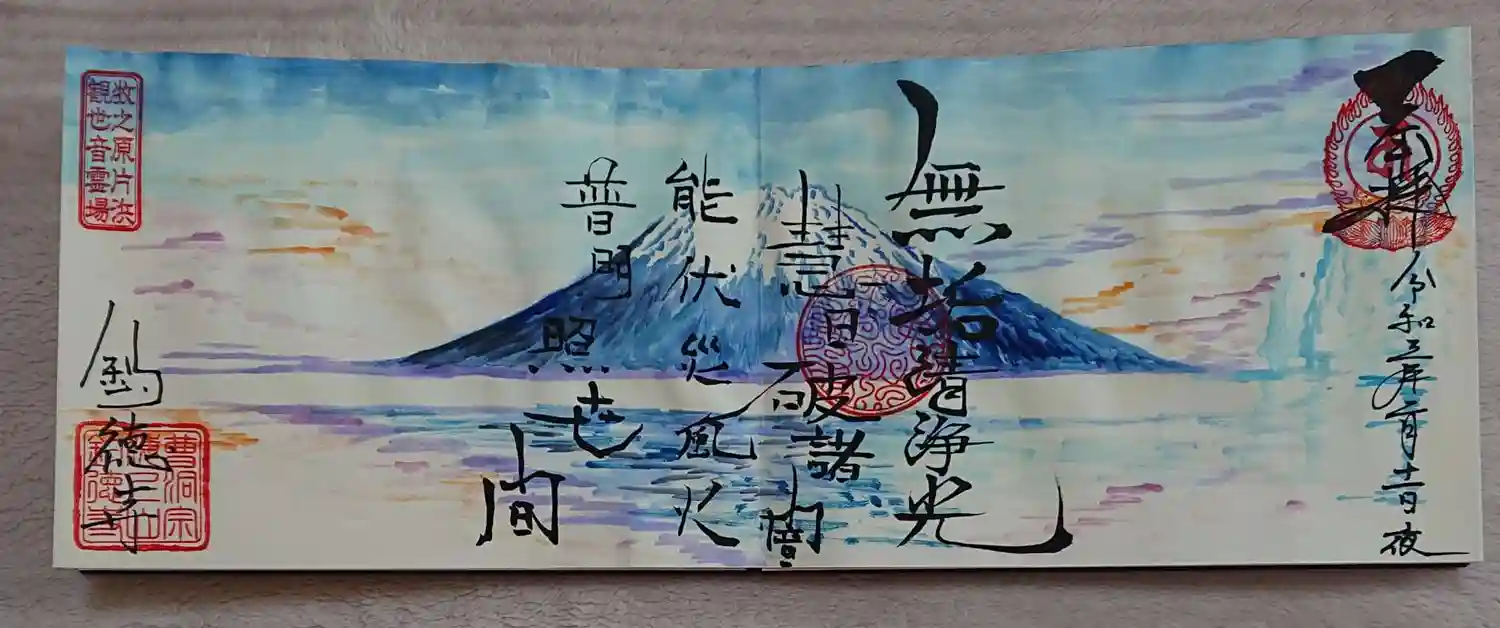 奉拝
令和三年二月 日夜
無垢清浄光
慧日破諸闇
能伏災風火
普明照世間
牧之原片浜
観世音霊場
徳寺
曹洞宗